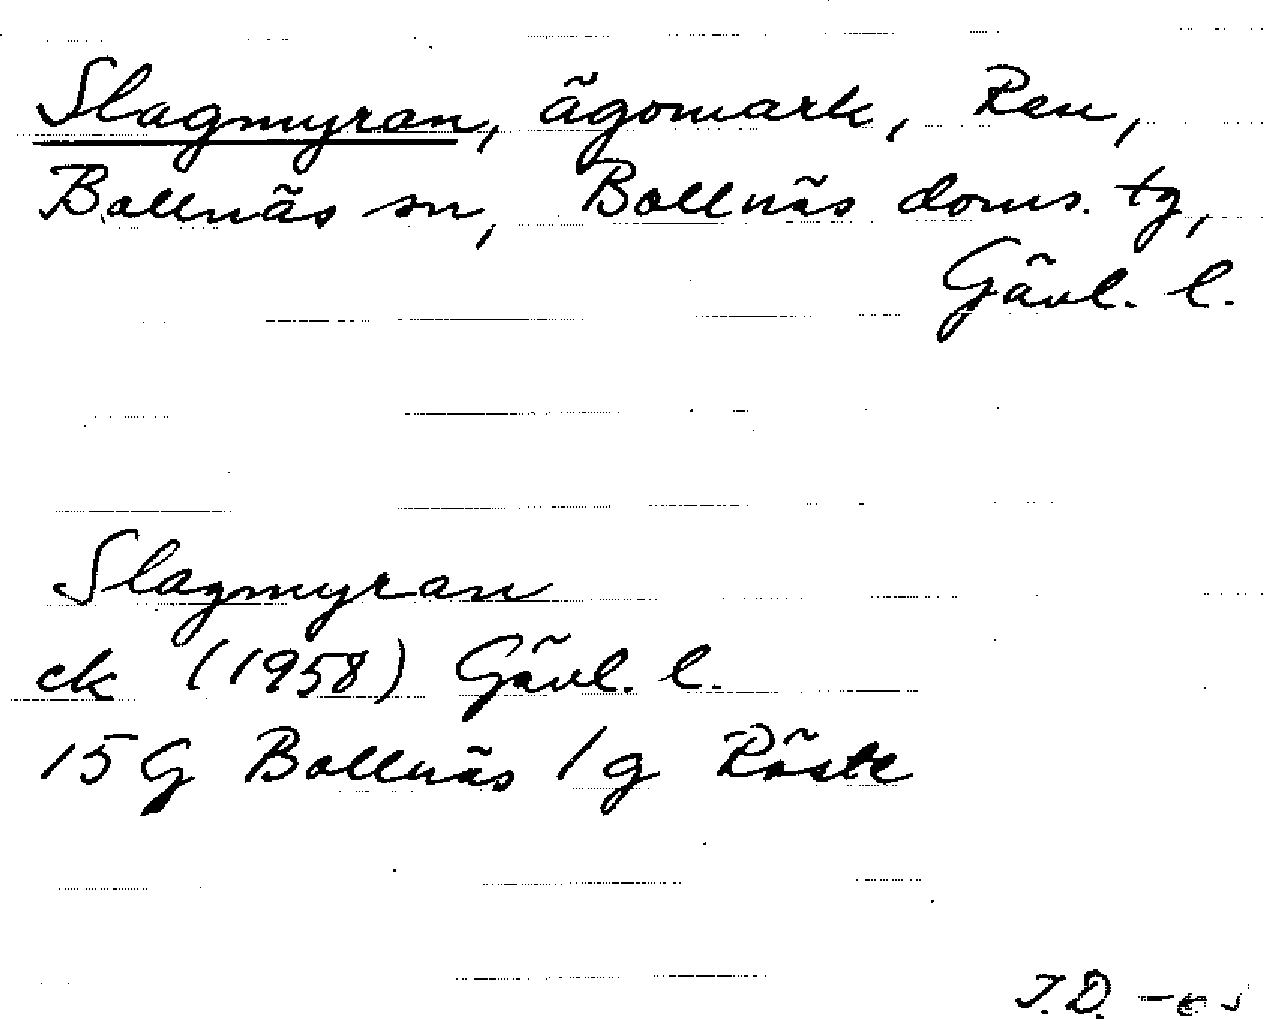 Slagmyran, ägomark, Ren,
Bollnäs sn, Bollnäs doms. tg,
Gävl. l.
Slagmyran
ek (1958) Gävl. l.
15 G Bollnäs 1 g Röste
J.D.